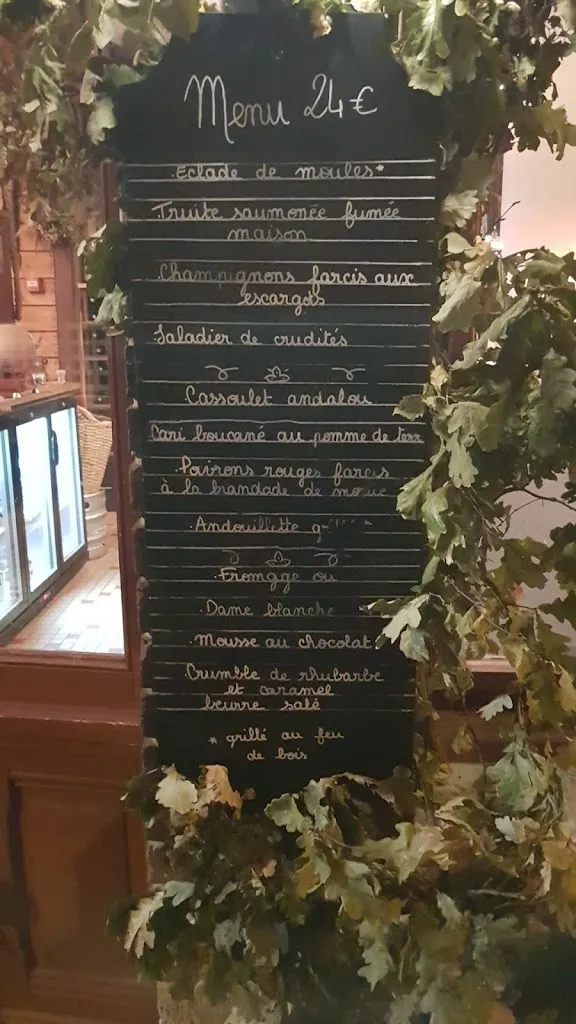 Menu 24€
Eclade de moules*
Truite saumonée fumée
maison
Champignons farcis aux
escargots
Saladier de crudités
Cassoulet andalou
Cari boucané au pomme de terr
Poivrons rouges farcis
à la brandade de morue
Andouillette
Fromage ou
Dame blanche
Mousse au chocolat
Crumble de rhubarbe
et caramel
beurre salé
* grillé au feu
de bois